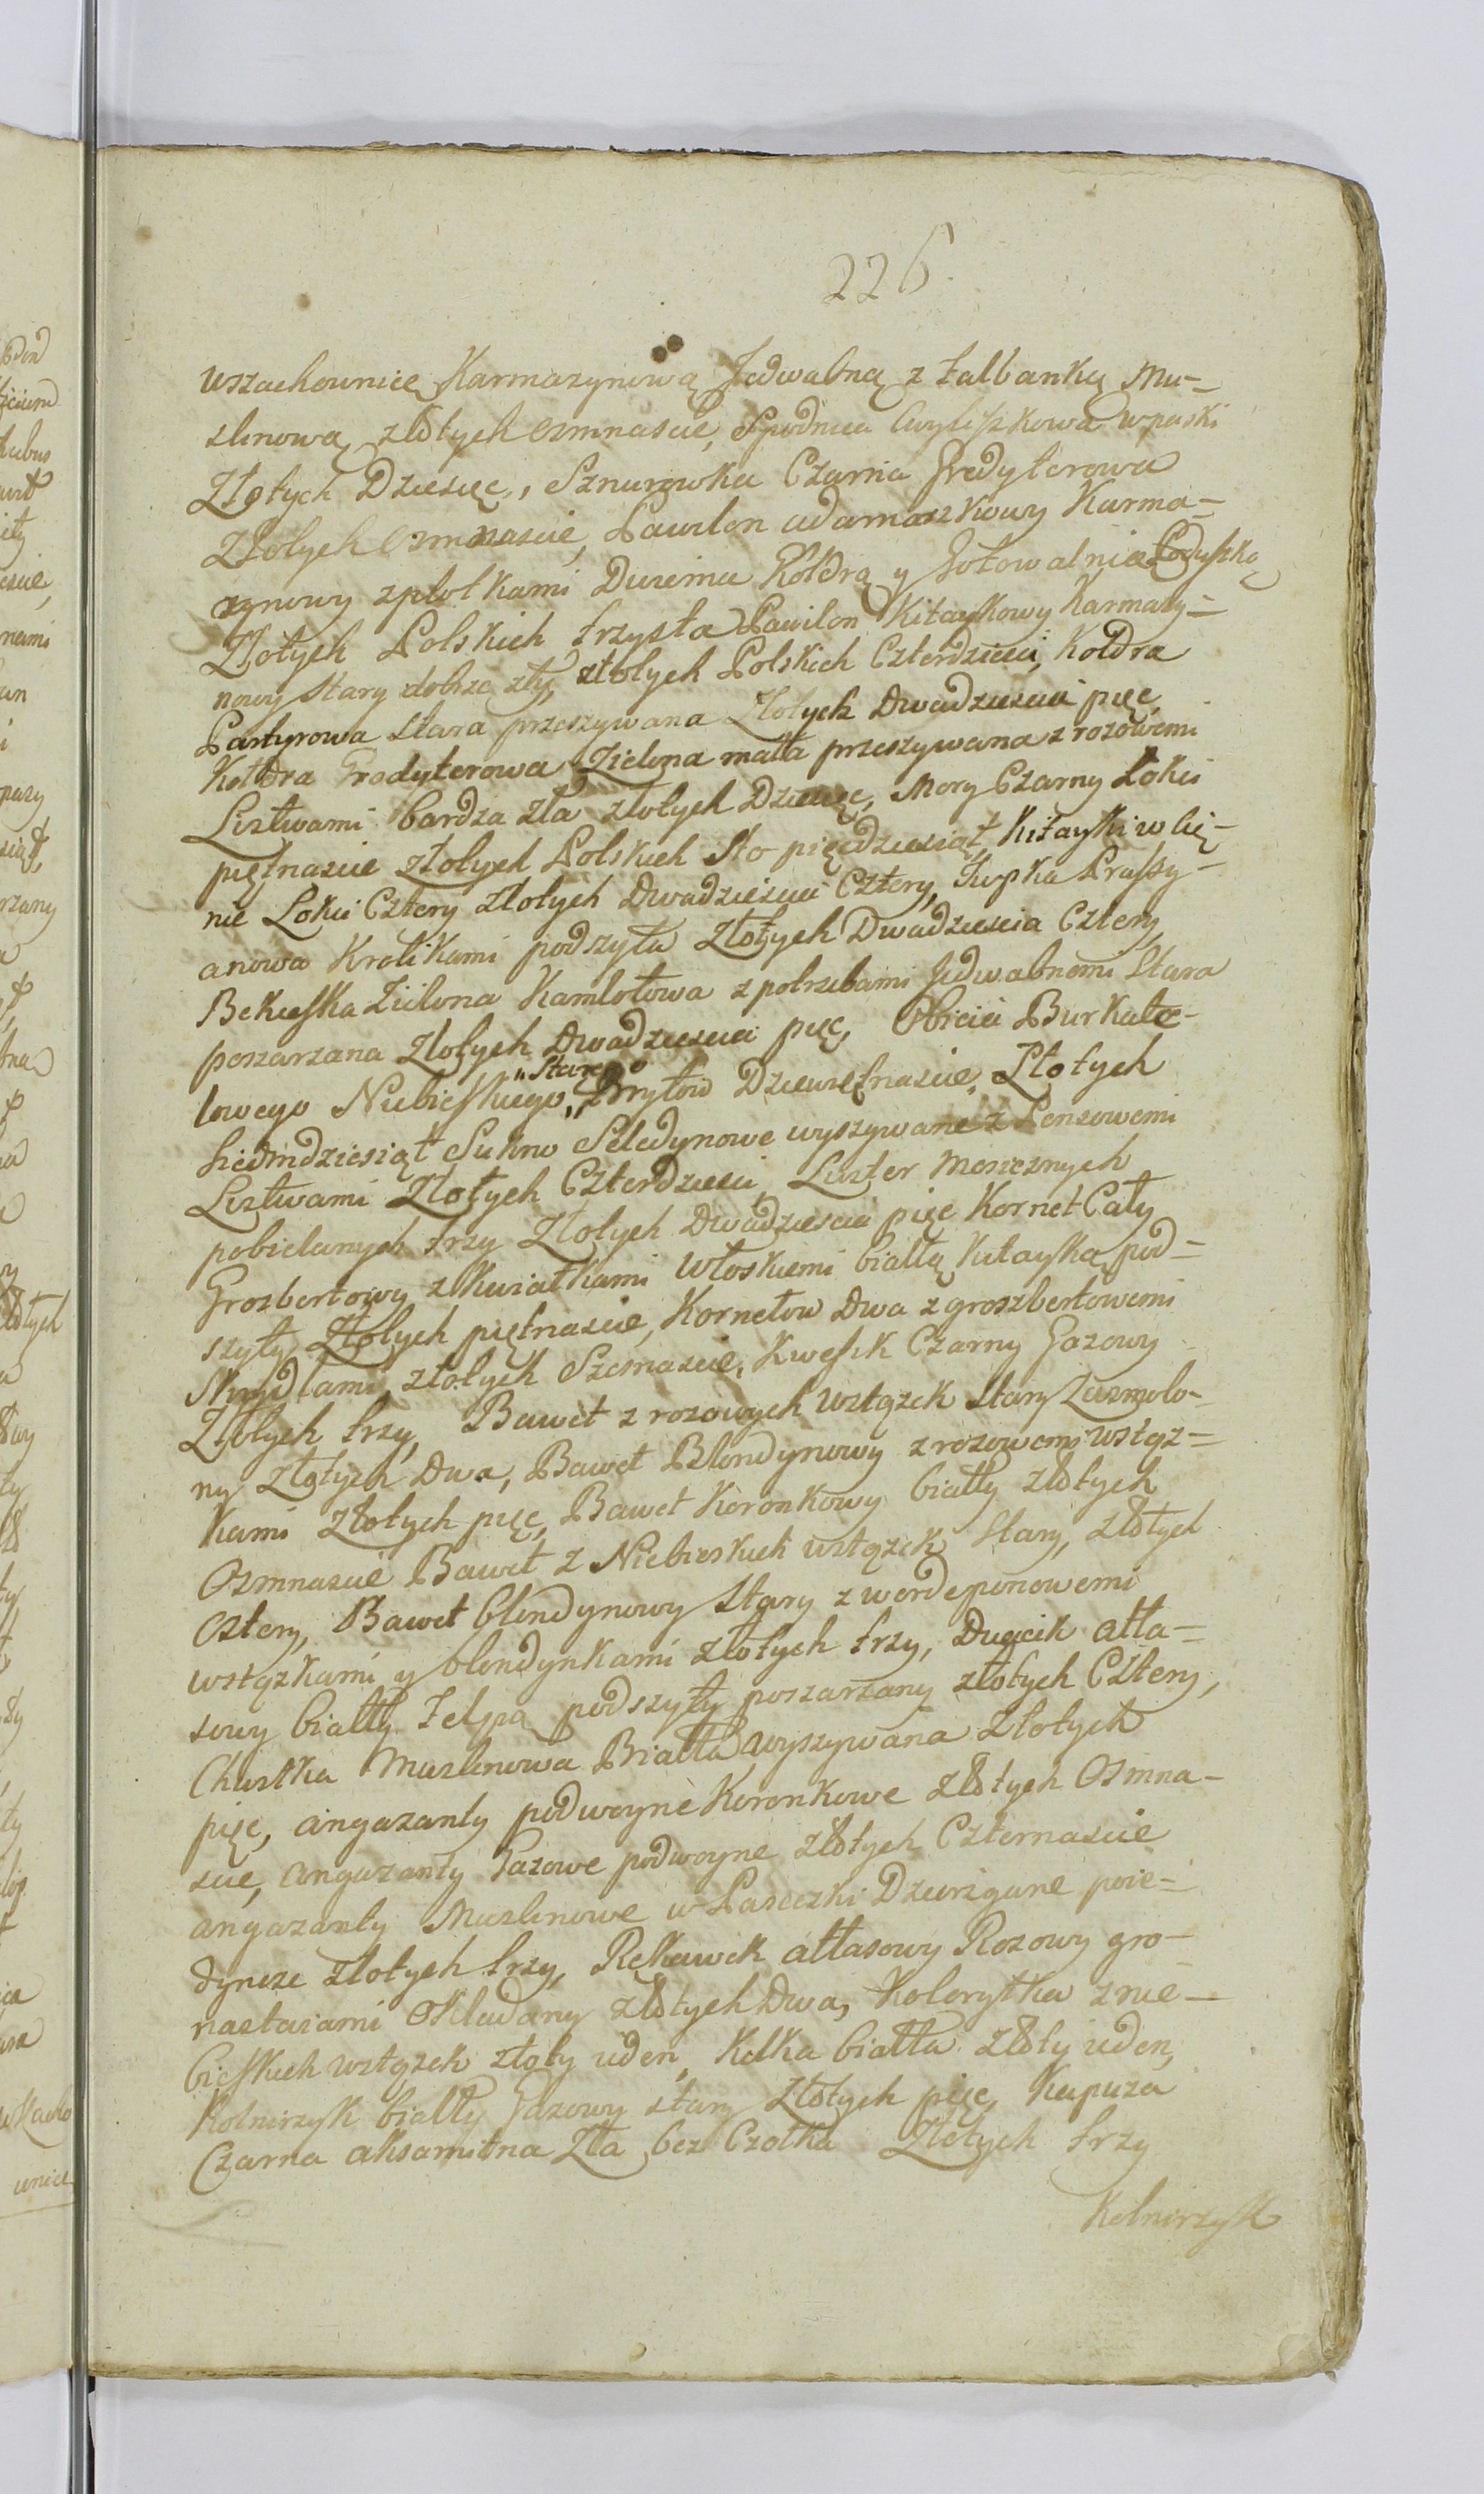 226.
wszachownicę Karmazynową Jedwabną z falbanką Mu-
slinową złotych osmnascie, Spodnica Cwyliszkowa w paski
Złotych Dziesięc, Sznurowka Czarna Gredyterowa
Złotych osmnascie, Pawilon adamaszkowy Karma-
zynowy zplotkami Duzemi Kołdrą y Gotowalnią Poduszką
Złotych Polskich trzysta Pawilon Kitaykowy Karmazy-
nowy stary dobrze zły, złotych Polskich Czterdziesci, Kołdra
Partyrowa stara przeszywana Złotych Dwadziescia pięc,
Kołdra Grodyterowa Zielona mała przeszywana z rozowemi
Listwami bardza zła złotych Dziewięc, Mory Czarny Łokci
piętnascie złotych Polskich sto pięcdziesiąt, Kitayki w lię-
nie Lokci Cztery złotych Dwadziescia Cztery, Jupka Prassy-
anowa Krolikami podszyta Złotych Dwadziescia Cztery
Bekieszka Zielona Kamlotowa z potrzebami Jedwabnemi stara
poszarzana Złotych Dwadziescia pięc, Obicia Burkate-
lowego Niebieskiego „Starego„ Brytow Dziewiętnascie, Złotych
siedmdziesiąt Sukno Seledynowe wyszywane z Ponsowemi
Listwami Złotych Czterdziesci, Luster mosieznych
pobielanych trzy Złotych Dwadziescia pięc Kornet Cały
Grozbertowy z Kwiatkami Włoskiemi białłą Kitayką pod-
szyty Złotych piętnascie, Kornetow Dwa z groszbertowemi
Skrzydlami, złotych Szesnascie, Kwefik Czarny Gazowy
Złotych trzy, Bawet z rozowych Wstązek stary Zusmolo-
ny Złotych Dwa, Bawet Blondynowy z rozowemi wstąz-
kami Złotych pięc, Bawet Koronkowy biały złotych
Osmnascie Bawet z Niebieskich wstązek stary, złotych
Cztery, Bawet blondynowy stary z werdeponowemi
wstązkami y blondynkami złotych trzy, Duecik atła-
sowy biały Felpą podszyty poszarzany złotych Cztery,
Chustka Muslinowa Białła wyszywana Złotych
pięc, angazanty podwoyne Koronkowe złotych Osmna-
scie, angazanty Gazowe podwoyne złotych Czternascie
angazanty Muslinowe w Paseczki Dzierzgane poie-
dyncze złotych trzy, Rękawek atłasowy Rozowy gro-
nastaiami Okładany złotych Dwa, Kolorytka z nie-
bieskich wstązek złoty ieden, Kilka białła złoty ieden,
Kolnirzyk białły Gazowy stary Złotych pięc, Kapuza
Czarna aksamitna Zła bez Czołka Złotych trzy
Kolnirzyk